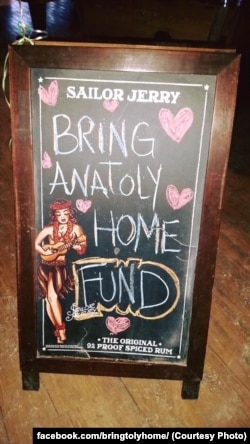 SAILOR JERRY
BRING
ANATOLY
HOME
FUND
• THE ORIGINAL •
92 PROOF SPICED RUM
facebook.com/bringtolyhome/ (Courtesy Photo)